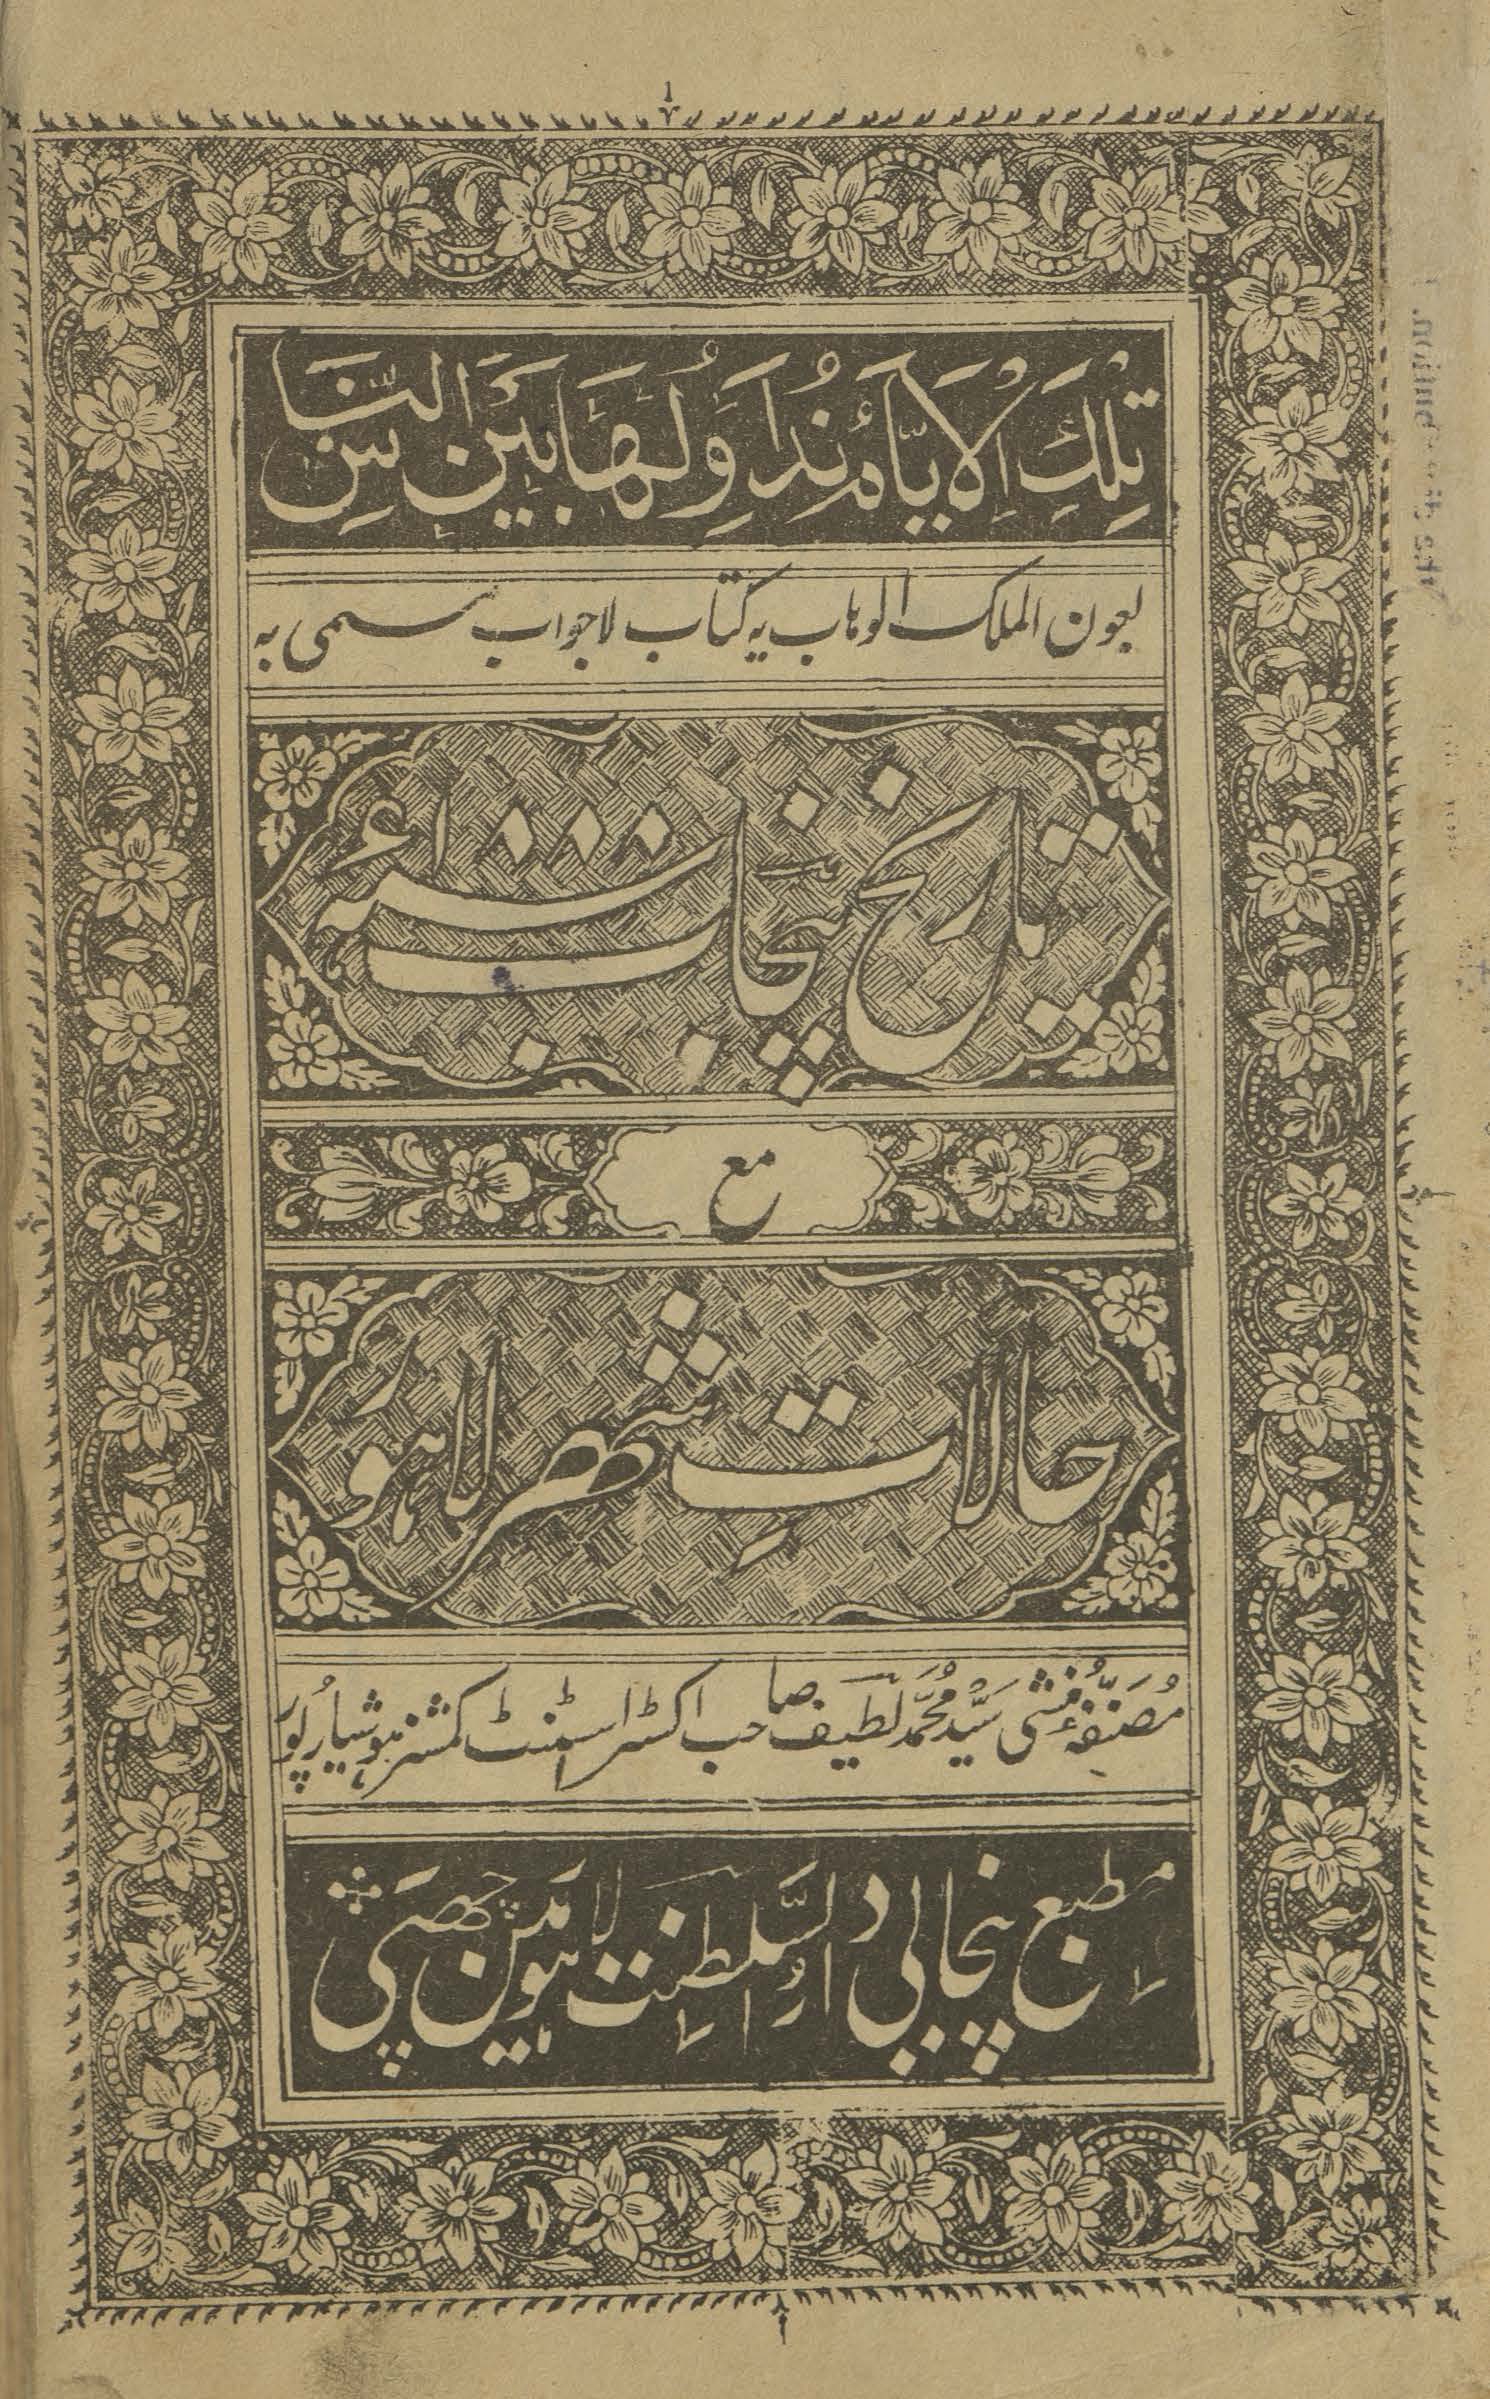 تِلْكَ الْاَيَّامُ نُدَاوِلُهَا بَيْنَ النَّاسِ
بعون الملک الوہاب یہ کتاب لاجواب مسمی بہ
تاریخ پنجاب
مع
حالاتِ شہر لاہور
مُصنّفہٗ مُنشی سَیّد مُحمَّد لَطیف صاحب اکسٹرا اسٹنٹ کمشنر ہوشیارپُور
مطبع پنجابی دارُ السَّلطِنت لاہور مین چھپی